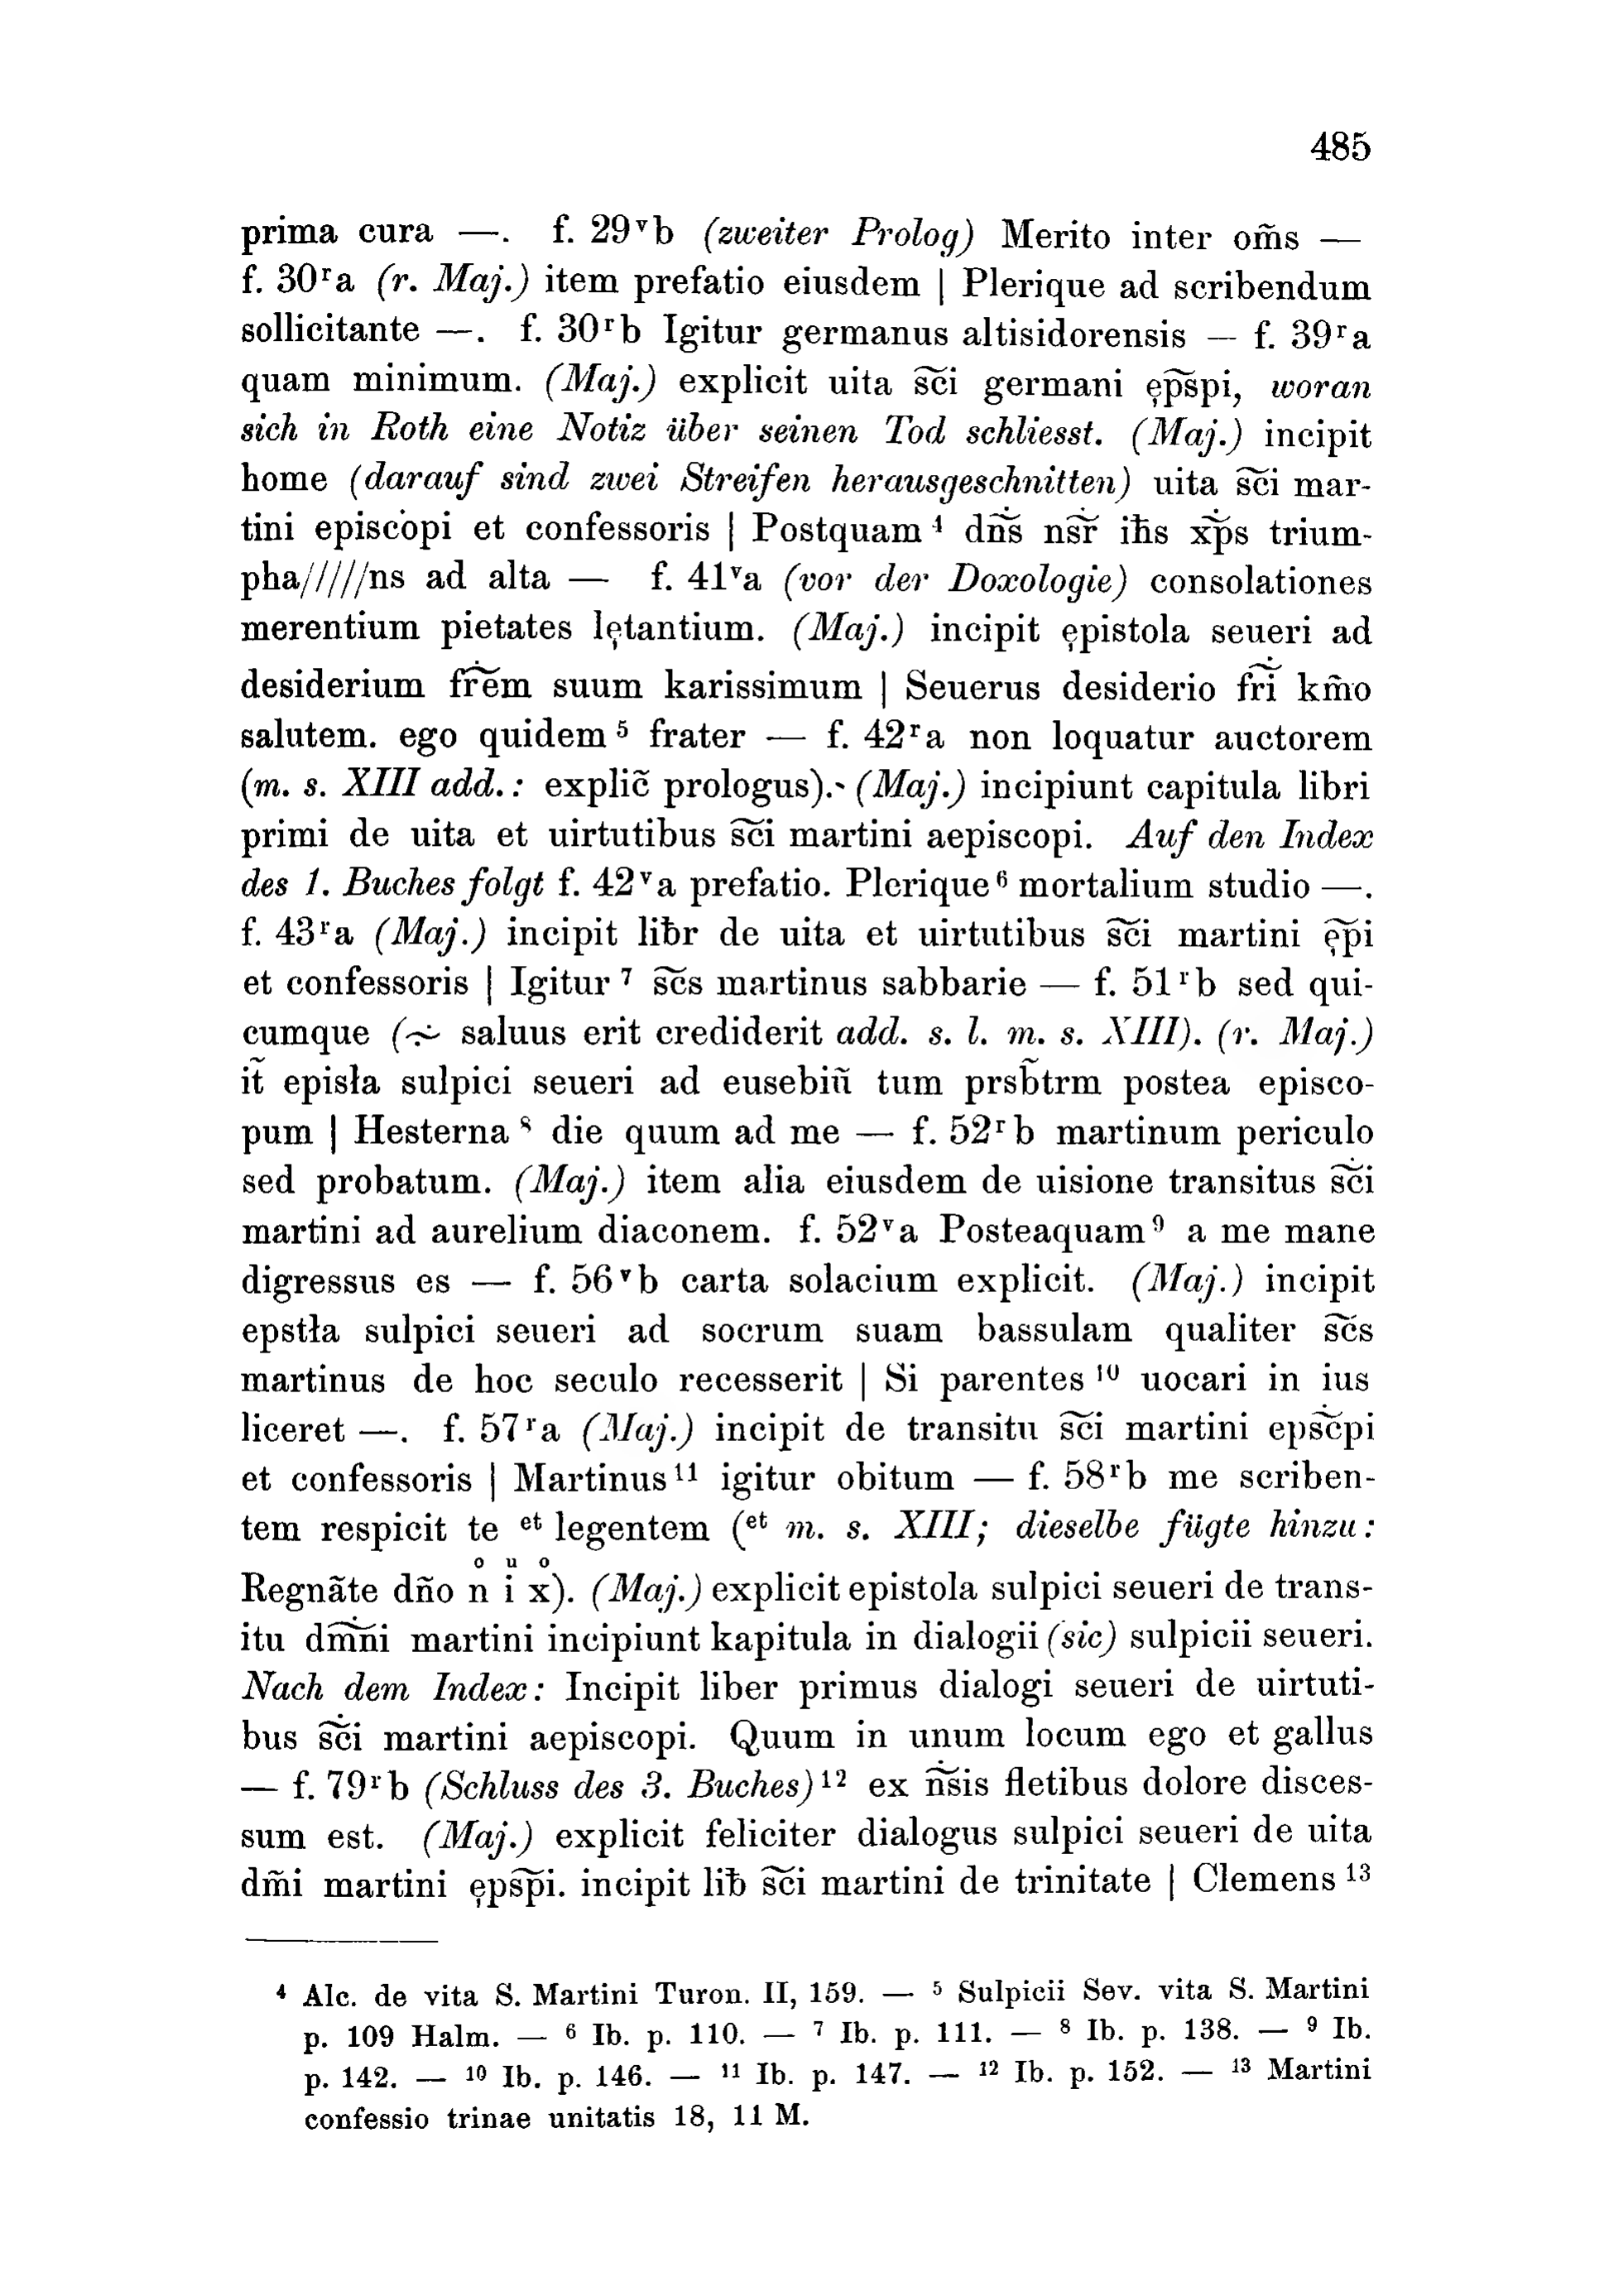 485
prima cura —. f. 29ᵛb (zweiter Prolog) Merito inter om̃s —
f. 30ʳa (r. Maj.) item prefatio eiusdem | Plerique ad scribendum
sollicitante —. f. 30ʳb Igitur germanus altisidorensis — f. 39ʳa
quam minimum. (Maj.) explicit uita s͠ci germani ęp͠spi, woran
sich in Roth eine Notiz über seinen Tod schliesst. (Maj.) incipit
home (darauf sind zwei Streifen herausgeschnitten) uita s͠ci mar-
tini episcopi et confessoris | Postquam⁴ dn͠s ns͠r ih̄s xp͠s trium-
pha/////ns ad alta — f. 41ᵛa (vor der Doxologie) consolationes
merentium pietates lętantium. (Maj.) incipit ępistola seueri ad
desiderium fr͠em suum karissimum | Seuerus desiderio fr͠i km̃o
salutem. ego quidem⁵ frater — f. 42ʳa non loquatur auctorem
(m. s. XIII add.: explic̃ prologus). (Maj.) incipiunt capitula libri
primi de uita et uirtutibus s͠ci martini aepiscopi. Auf den Index
des 1. Buches folgt f. 42ᵛa prefatio. Plerique⁶ mortalium studio —.
f. 43ʳa (Maj.) incipit lib̄r de uita et uirtutibus s͠ci martini ęp͠i
et confessoris | Igitur⁷ sc͠s martinus sabbarie — f. 51ʳb sed qui-
cumque (∻ saluus erit crediderit add. s. l. m. s. XIII). (r. Maj.)
it̃ episła sulpici seueri ad eusebiũ tum prsb̃trm postea episco-
pum | Hesterna⁸ die quum ad me — f. 52ʳb martinum periculo
sed probatum. (Maj.) item alia eiusdem de uisione transitus s͠ci
martini ad aurelium diaconem. f. 52ᵛa Posteaquam⁹ a me mane
digressus es — f. 56ᵛb carta solacium explicit. (Maj.) incipit
epstła sulpici seueri ad socrum suam bassulam qualiter sc͠s
martinus de hoc seculo recesserit | Si parentes¹⁰ uocari in ius
liceret —. f. 57ʳa (Maj.) incipit de transitu s͠ci martini eps͠cpi
et confessoris | Martinus¹¹ igitur obitum — f. 58ʳb me scriben-
tem respicit te ᵉᵗ legentem (ᵉᵗ m. s. XIII; dieselbe fügte hinzu:
Regnãte dño nͦ iͧ xͦ). (Maj.) explicit epistola sulpici seueri de trans-
itu dm͠ni martini incipiunt kapitula in dialogii (sic) sulpicii seueri.
Nach dem Index: Incipit liber primus dialogi seueri de uirtuti-
bus s͠ci martini aepiscopi. Quum in unum locum ego et gallus
— f. 79ʳb (Schluss des 3. Buches)¹² ex ns͠is fletibus dolore disces-
sum est. (Maj.) explicit feliciter dialogus sulpici seueri de uita
dm̃i martini ęps͠pi. incipit lib̄ s͠ci martini de trinitate | Clemens¹³
⁴ Alc. de vita S. Martini Turon. II, 159. — ⁵ Sulpicii Sev. vita S. Martini
p. 109 Halm. — ⁶ Ib. p. 110. — ⁷ Ib. p. 111. — ⁸ Ib. p. 138. — ⁹ Ib.
p. 142. — ¹⁰ Ib. p. 146. — ¹¹ Ib. p. 147. — ¹² Ib. p. 152. — ¹³ Martini
confessio trinae unitatis 18, 11 M.